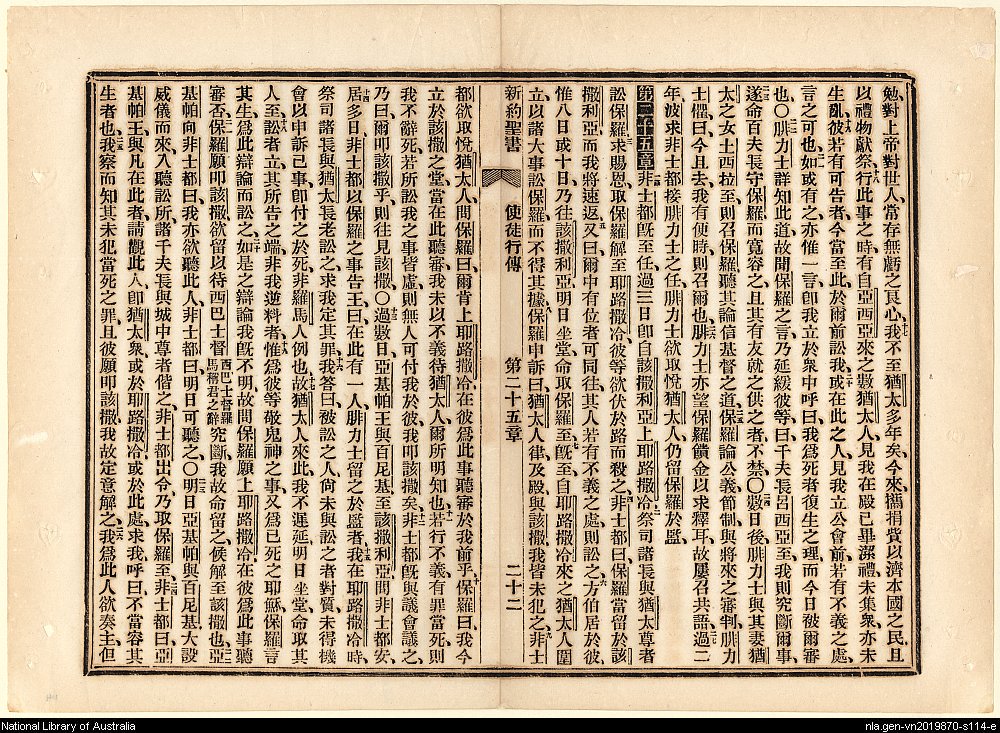 勉對上帝對世人常存無虧之良心我不至猶太多年矣今來攜捐貲以濟本國之民且
以禮物獻祭行此事之時有自亞西亞來之數猶太人見我在殿已畢潔禮未集衆亦未
生亂彼若有可告者今當至此於爾前訟我或在此之人見我立公會前若有不義之處
言之可也如或有之亦惟一言卽我立於衆中呼曰我爲死者復生之理而今日被爾審
也〇腓力士詳知此道故聞保羅之言乃延緩彼等曰千夫長呂西亞至我則究斷爾事
遂命百夫長守保羅而寬容之且其有友就之供之者不禁〇數日後腓力士與其妻猶
太之女土西拉至則召保羅聽其論信基督之道保羅論公義節制與將來之審判腓力
士懼曰今且去我有便時則召爾也腓力士亦望保羅饋金以求釋耳故屢召共語過二
年波求非士都接腓力士之任腓力士欲取悅猶太人仍留保羅於監
第二十五章非士都旣至任過三日卽自該撒利亞上耶路撒冷祭司諸長與猶太尊者
訟保羅求賜恩取保羅解至耶路撒冷彼等欲伏於路而殺之非士都曰保羅當留於該
撒利亞而我將速返又曰爾中有位者可同往其人若有不義之處則訟之方伯居於彼
惟八日或十日乃往該撒利亞明日坐堂命取保羅至旣至自耶路撒冷來之猶太人圍
立以諸大事訟保羅而不得其據保羅申訴曰猶太人律及殿與該撒我皆未犯之非士
新約聖書 使徒行傳 第二十五章 二十二
都欲取悅猶太人問保羅曰爾肯上耶路撒冷在彼爲此事聽審於我前乎保羅曰我今
立於該撒之堂當在此聽審我未以不義待猶太人爾所明知也若行不義有罪當死則
我不辭死若所訟我之事皆虛則無人可付我於彼我叩該撒矣非士都旣與議會議之
乃曰爾叩該撒乎則往見該撒〇過數日亞基帕王與百尼基至該撒利亞問非士都安
居多日非士都以保羅之事告王曰在此有一人腓力士留之於監者我在耶路撒冷時
祭司諸長與猶太長老訟之求我定其罪我答曰被訟之人尙未與訟之者對質未得機
會以申訴己事卽付之於死非羅馬人例也故猶太人來此我不遲延明日坐堂命取其
人至訟者立其所告之端非我逆料者惟爲彼等敬鬼神之事又爲已死之耶穌保羅言
其生爲此辯論而訟之如是之辯論我旣不明故問保羅願上耶路撒冷在彼爲此事聽
審否保羅願叩該撒欲留以待西巴士督西巴士督羅馬稱君之辭究斷我故命留之候解至該撒也亞
基帕向非士都曰我亦欲聽此人非士都曰明日可聽之〇明日亞基帕與百尼基大設
威儀而來入聽訟所諸千夫長與城中尊者偕之非士都出令乃取保羅至非士都曰亞
基帕王與凡在此者請觀此人卽猶太衆或於耶路撒冷或於此處求我呼曰不當容其
生者也我察而知其未犯當死之罪且彼願叩該撒我故定意解之我爲此人欲奏主但
National Library of Australia
nla.gen-vn2019870-s114-e